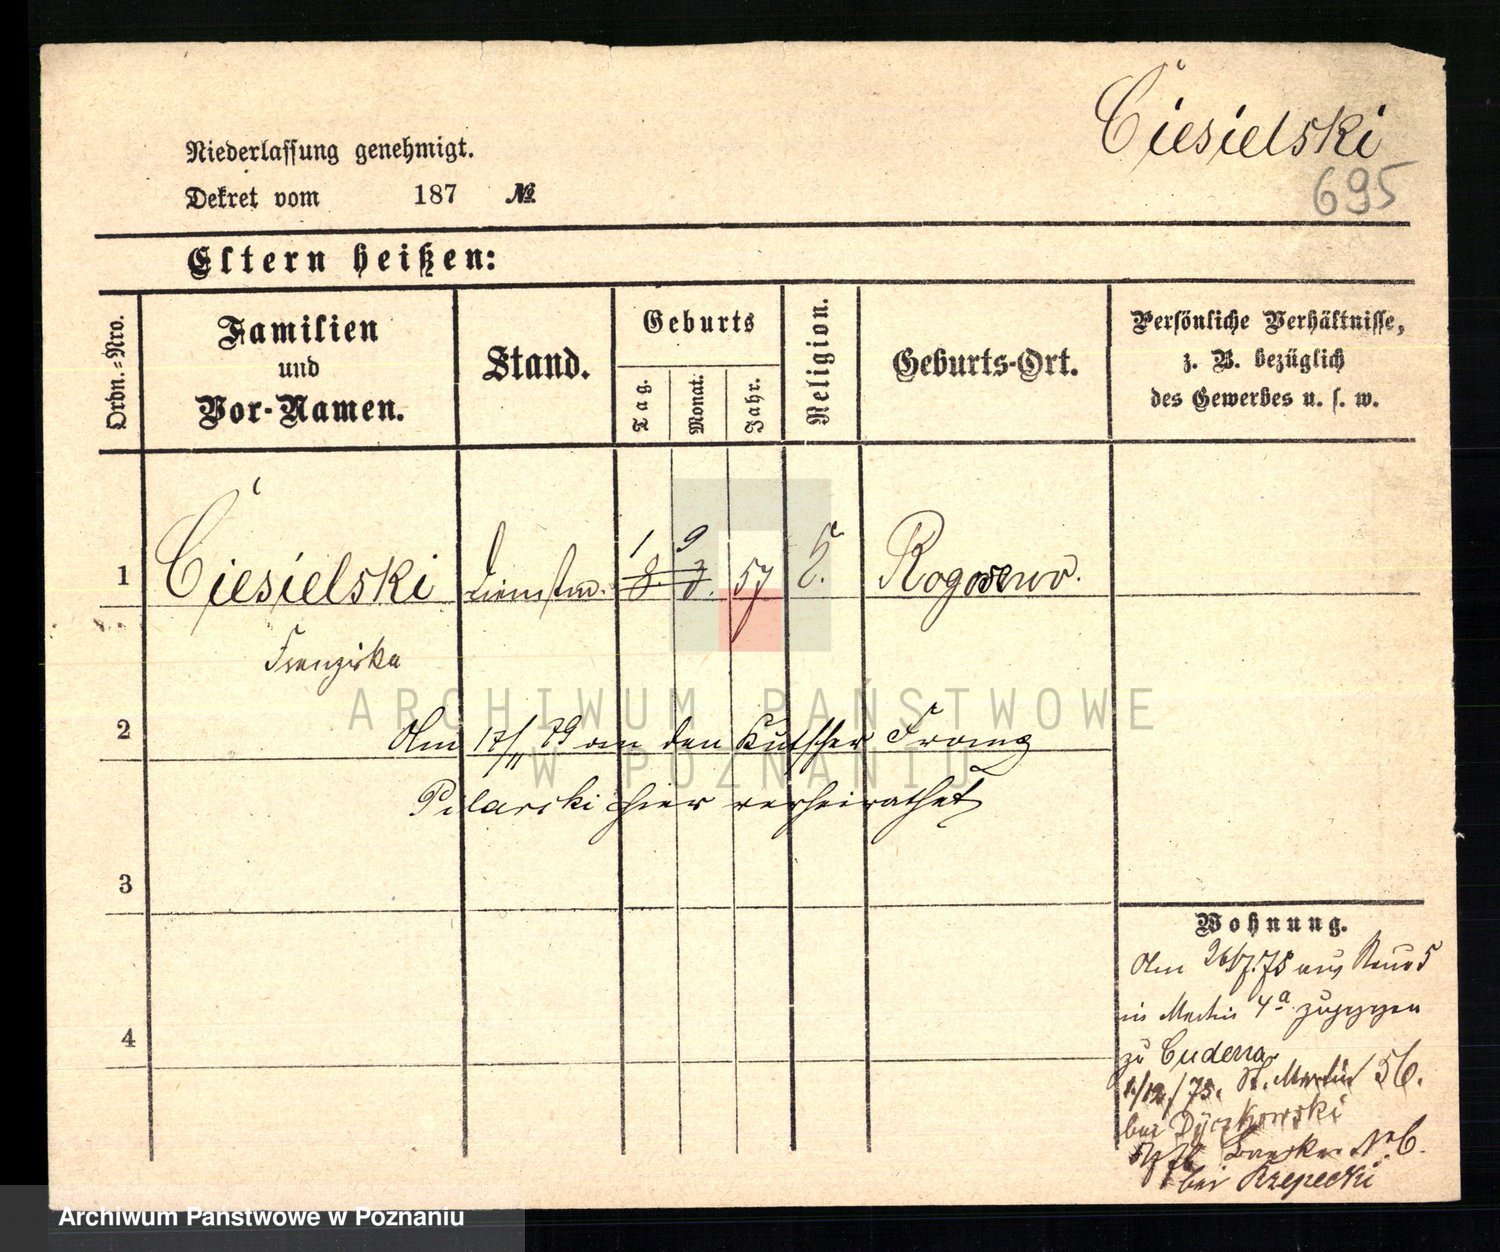 Ciesielski
695
Niederlassung genehmigt.
Dekret vom 187 №
Eltern heißen:
Ordn.-Nro.
Familien
und
Vor-Namen.
Stand.
Geburts
Tag.
Monat.
Jahr.
Religion.
Geburts-Ort.
Persönliche Verhältnisse,
z. B. bezüglich
des Gewerbes u. s. w.
1 9
1 Ciesielski Dienstm. 8. 3. 57 Rogowo.
Franziska
ARCHIWUM PAŃSTWOWE
W POZNANIU
2 Am 17/11 79 an den Kutscher Franz
Pilarski hier verheirathet
3
4
Wohnung.
Am 26/7.75 aus 5
in Martin 4a zugezogen
zu Cudena
1/12/75. St. Martin 56.
bei Dyczkowski
No 6.
bei Rzepecki
Archiwum Państwowe w Poznaniu